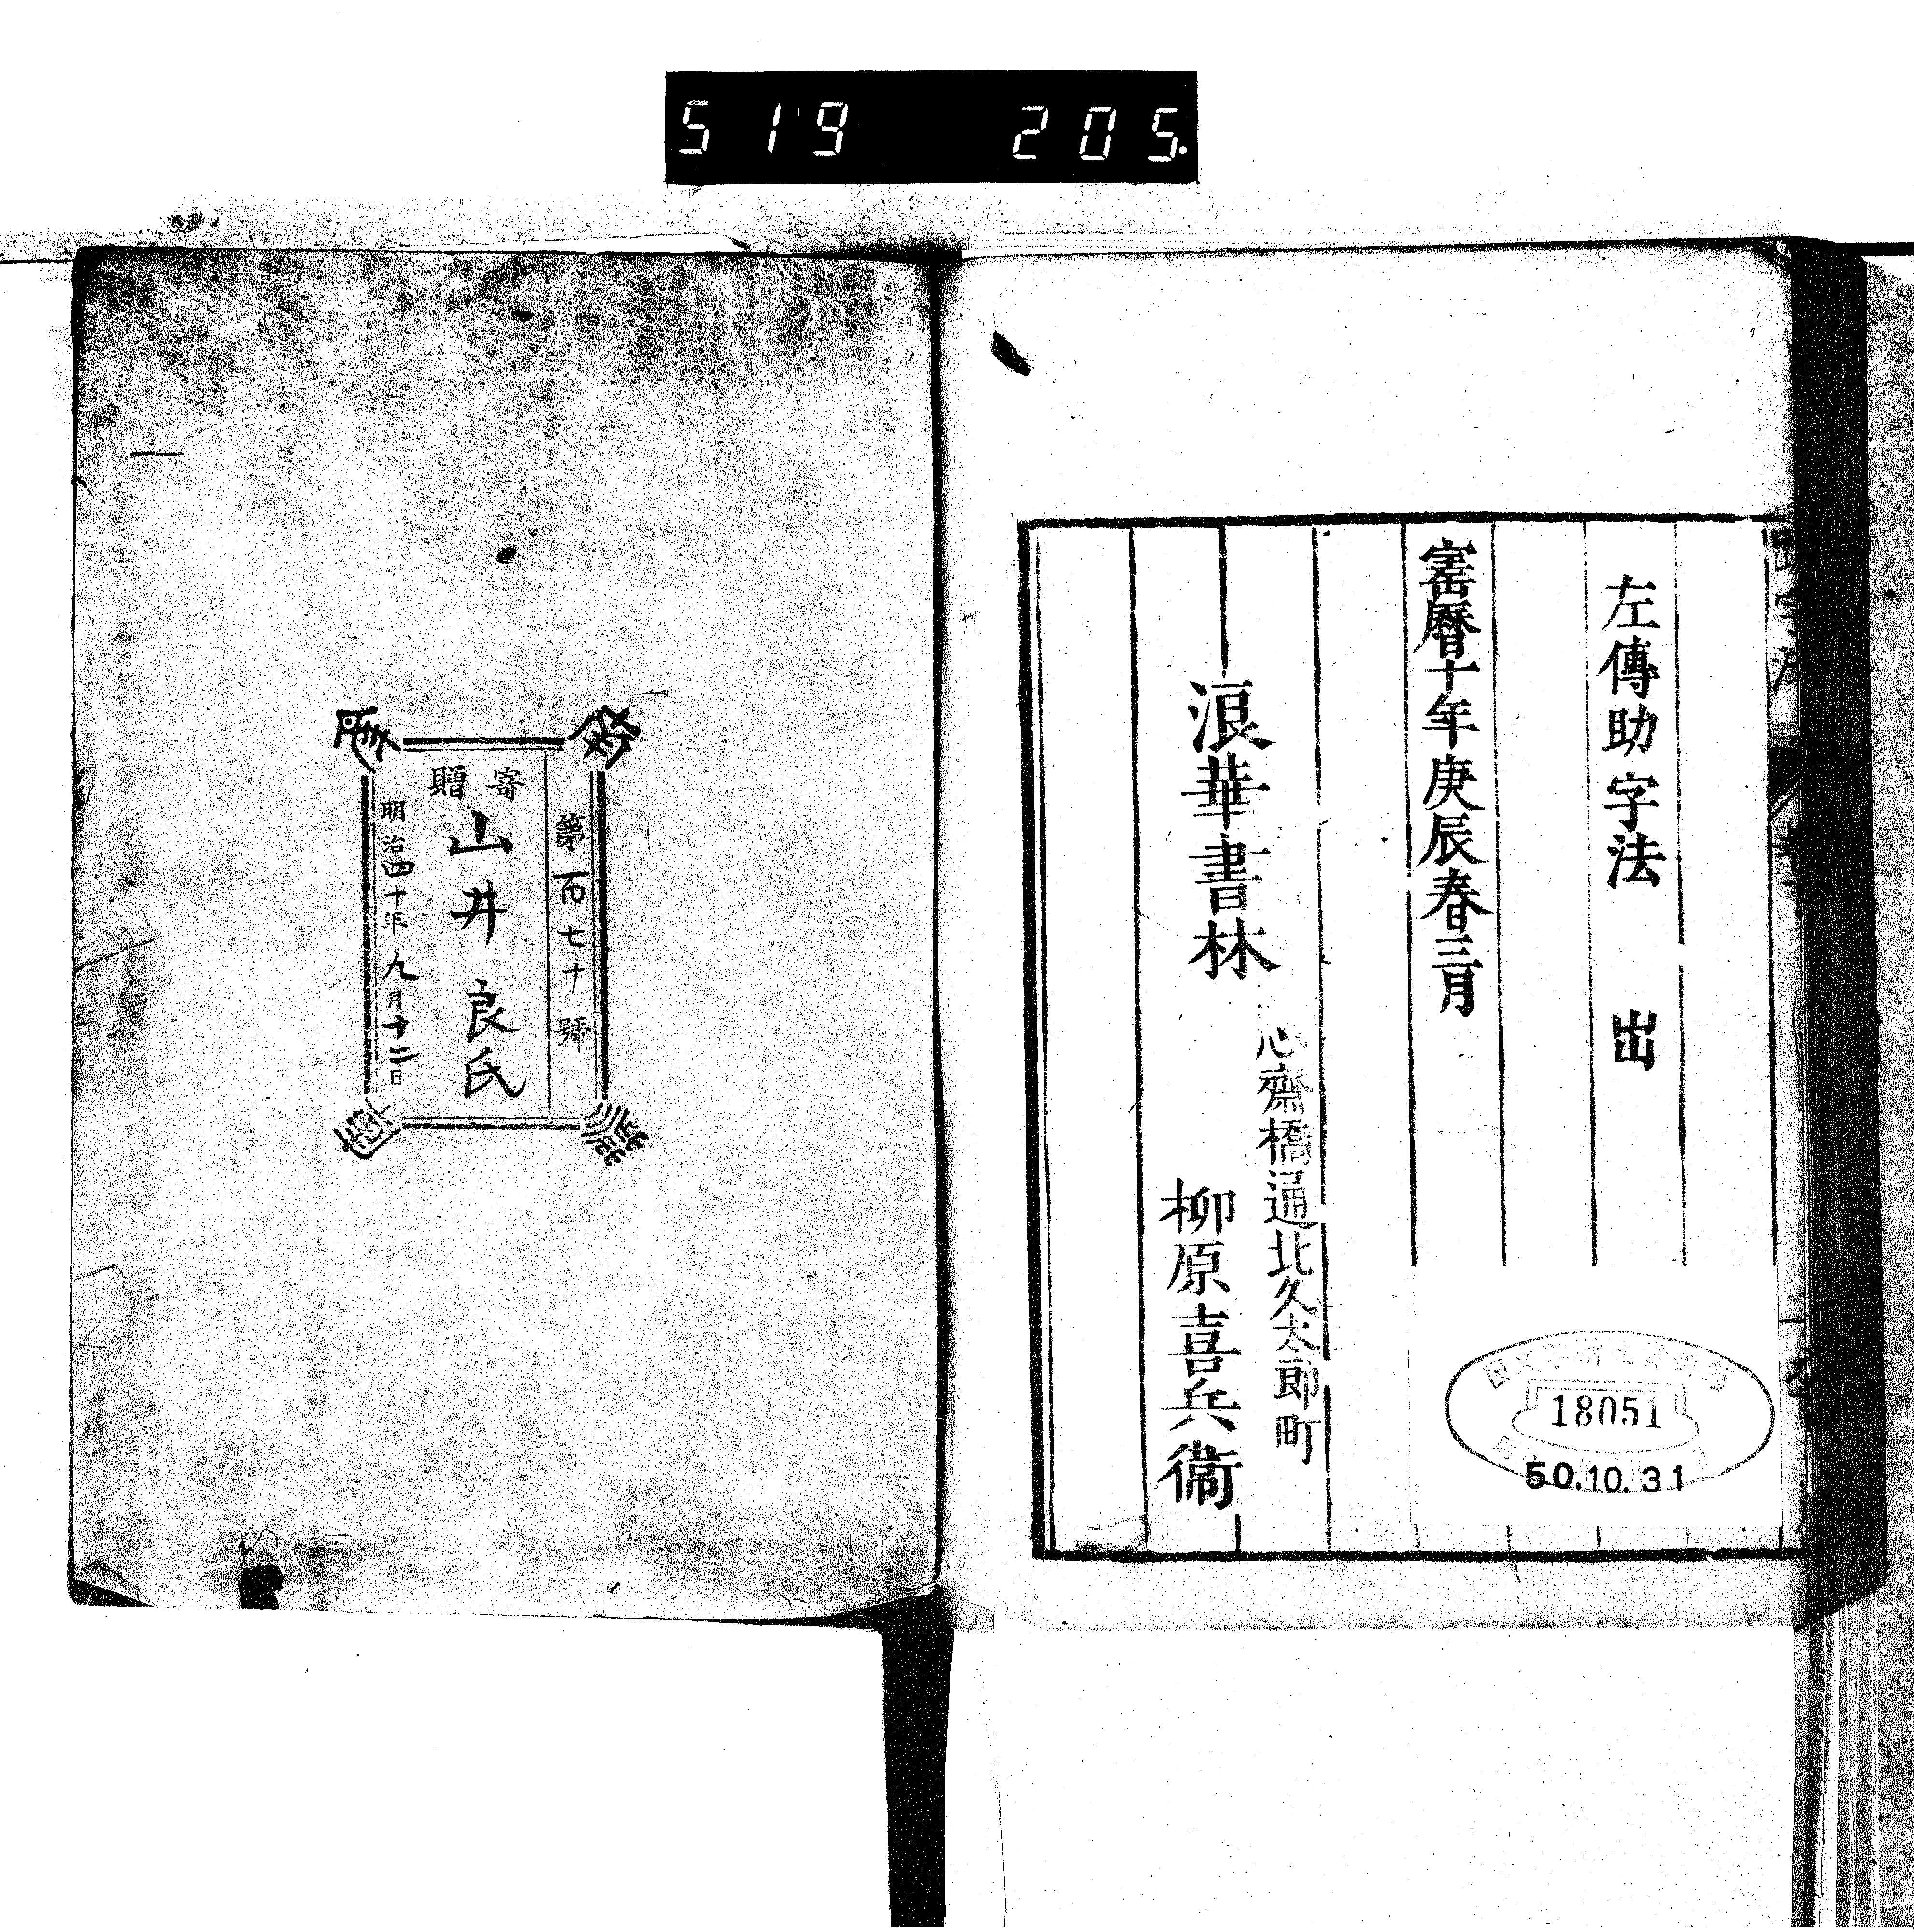 519 205.
左傳助字法 出
寚曆十年庚辰春三月
心齋橋通北久太郎町
浪華書林
柳原喜兵衞
18051
50.10.31
第百七十號
寄贈
山井良氏
明治四十年九月十二日